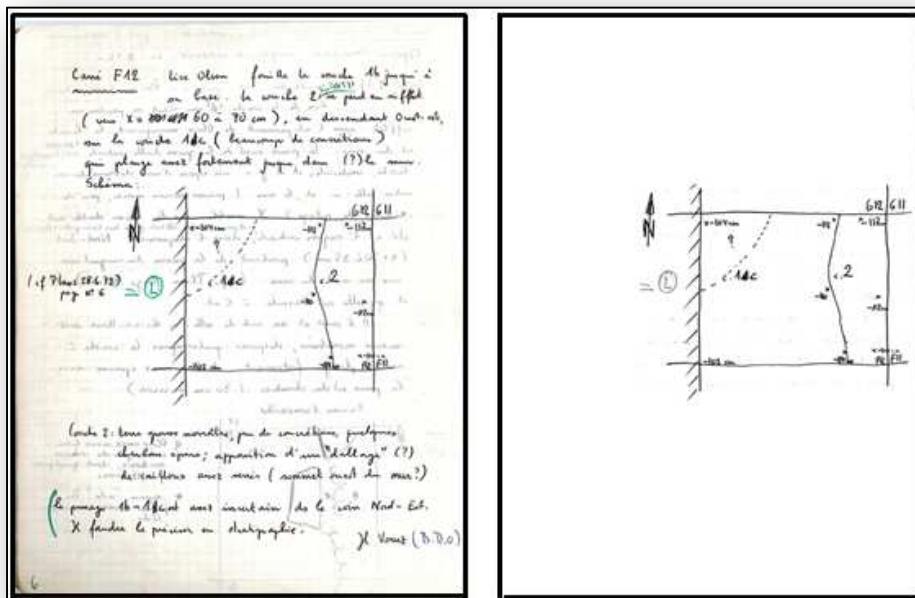 Carré F12. Lise Olson fouille la couche 1b jusqu'à
sa base. La couche 2 se perd en effet
(vers x = 60 à 70 cm), en descendant Ouest-est,
sur la couche 1c (beaucoup de concrétions)
qui plonge assez fortement jusque dans (?) le mur.
Schéma:
G12 G11
N
?
1c
2
(cf Plans 28.6.72)
page n° 6
= 2
F12 F11
Couche 2: terre grasse meuble, peu de concrétions, quelques
charbons épars; apparition d'un "dallage" (?)
de cailloux assez serrés (sommet ouest du mur?)
le passage 1b-1c est assez incertain de le coin Nord-Est.
Il faudra le préciser en stratigraphie.
(B.D.O)
6
G12 G11
N
?
1c
2
= 2
F12 F11